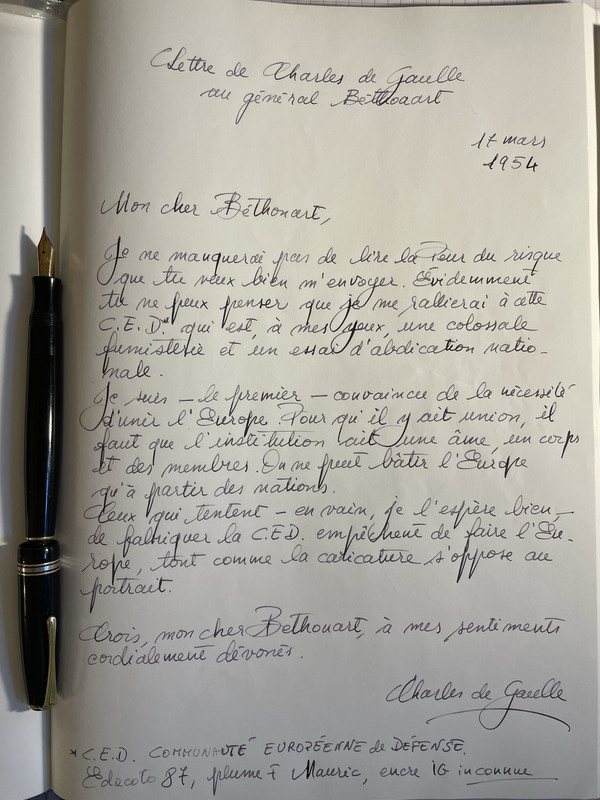 Lettre de Charles de Gaulle
au général Béthouart
17 mars
1954
Mon cher Béthouart,
Je ne manquerai pas de lire la Peur du risque
que tu veux bien m'envoyer. Évidemment
tu ne peux penser que je me rallierai à cette
C.E.D.* qui est, à mes yeux, une colossale
fumisterie et un essai d'abdication natio-
nale.
Je suis – le premier – convaincu de la nécessité
d'unir l'Europe. Pour qu'il y ait union, il
faut que l'institution ait une âme, un corps
et des membres. On ne peut bâtir l'Europe
qu'à partir des nations.
Ceux qui tentent – en vain, je l'espère bien –
de fabriquer la C.E.D. empêchent de faire l'Eu-
rope, tout comme la caricature s'oppose au
portrait.
Crois, mon cher Béthouart, à mes sentiments
cordialement dévoués.
Charles de Gaulle
* C.E.D. COMMUNAUTÉ EUROPÉENNE de DÉFENSE.
Edacoto 87, plume F Mauric, encre IG inconnue